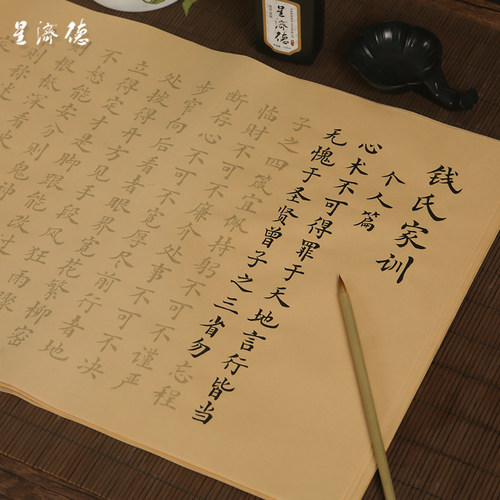 星濟德
星濟德
钱氏家训
个人篇
心术不可得罪于天地言行皆当
无愧于圣贤曾子之三省勿忘程
子之四箴宜佩持躬不可不谨严
临财不可不廉介处事不可不决
断存心不可不宽厚尽前行者地
步窄向后看者眼界宽花繁柳密
处拨得开方见手段风狂雨骤
立得定才是脚跟能改过
不怒能安分则鬼神
根柢深看史